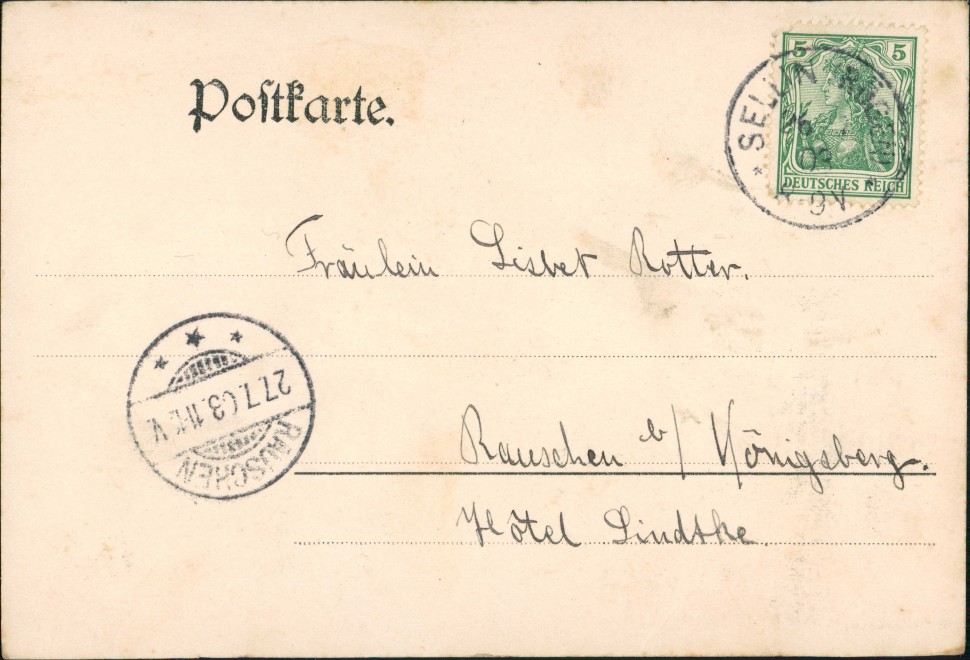 Postkarte.
5 5
DEUTSCHES REICH
SELLIN (RÜGEN)
03
8-9V.
Fräulein Lisbet Rotter.
27.7.03.11-12V.
RAUSCHEN
Rauschen b/ Königsberg.
Hôtel Lindtke